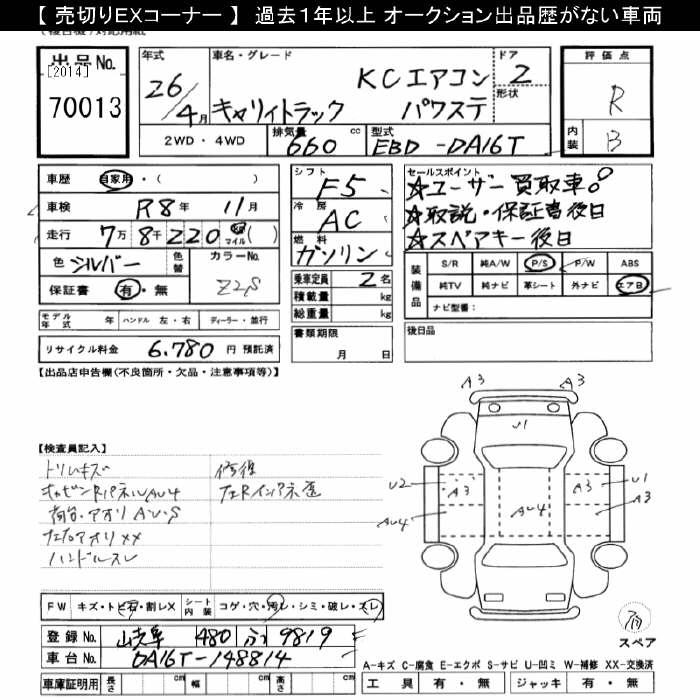 【 売切りEXコーナー 】 過去１年以上 オークション出品歴がない車両
出品No.
[2014]
70013
年式
26/4月
車名・グレード
キャリイトラック
KCエアコン
パワステ
ドア
2
形状
評価点
R
内装
B
2WD・4WD
排気量 660 cc
型式 EBD-DA16T
車歴 自家用・( )
車検 R8年 11月
走行 7万8千220 km マイル ( )
色 シルバー 色替
カラーNo.
Z2S
保証書 有・無
シフト
F5
冷房
AC
燃料
ガソリン
乗車定員 2名
積載量 kg
総重量 kg
セールスポイント
☆ユーザー買取車。
☆取説・保証書後日
☆スペアキー後日
装備品
S/R 純A/W P/S P/W ABS
純TV 純ナビ 革シート 外ナビ エアB
ナビ型番:
モデル年式 年 ハンドル 左・右 ディーラー・並行
リサイクル料金 6,780 円 預託済
書類期限
月 日
後日品
【出品店申告欄(不良箇所・欠品・注意事項等)】
【検査員記入】
トリムキズ
キャビンRパネルAU4
荷台・アオリAU・S
左右アオリXX
ハンドルスレ
修復
左Rインパネ歪
A3 A3
U1
U2 A3 A3 U1
A3
AU4 AU4
有
スペア
FW キズ・トビ石・割レX
シート内装 コゲ・穴・汚レ・シミ・破レ・スレ
登録No. 岐阜 480 ふ 9819
車台No. DA16T-148814
車庫証明用 長さ cm 幅 cm 高さ cm
A-キズ C-腐食 E-エクボ S-サビ U-凹ミ W-補修 XX-交換済
工具 有・無 ジャッキ 有・無